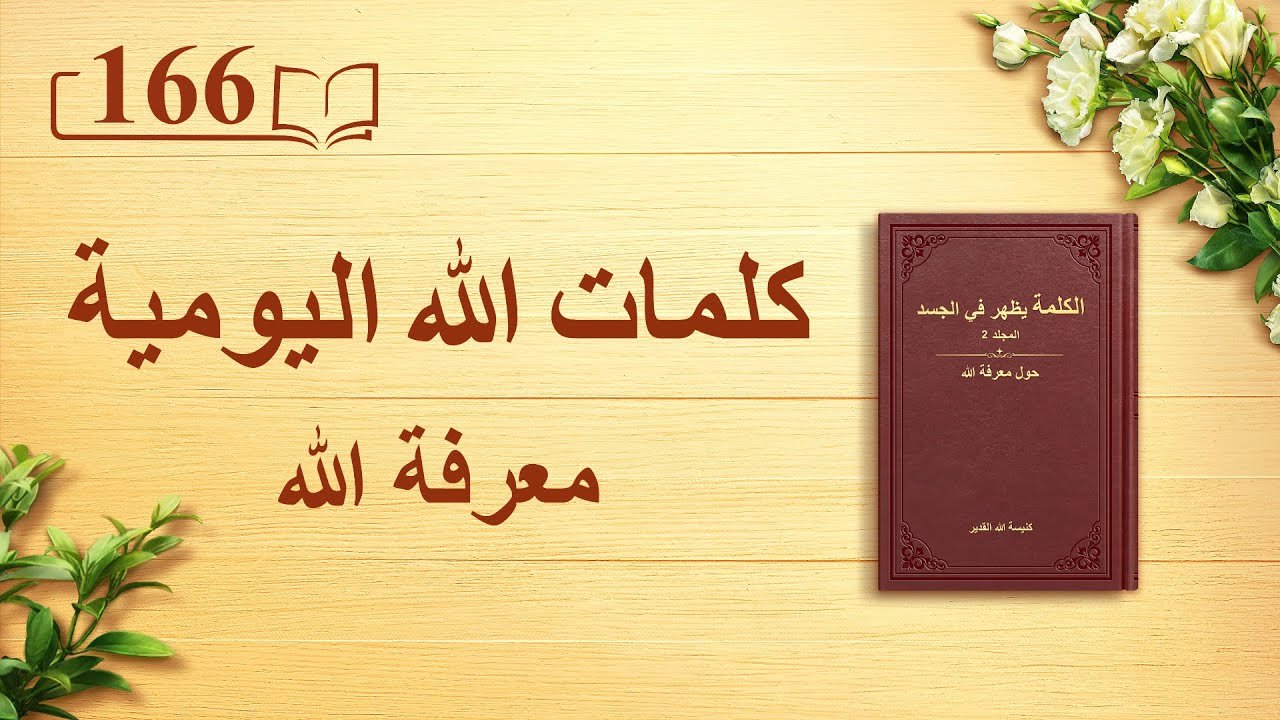 166
كلمات الله اليومية
معرفة الله
الكلمة يظهر في الجسد
المجلد 2
حول معرفة الله
كنيسة الله القدير